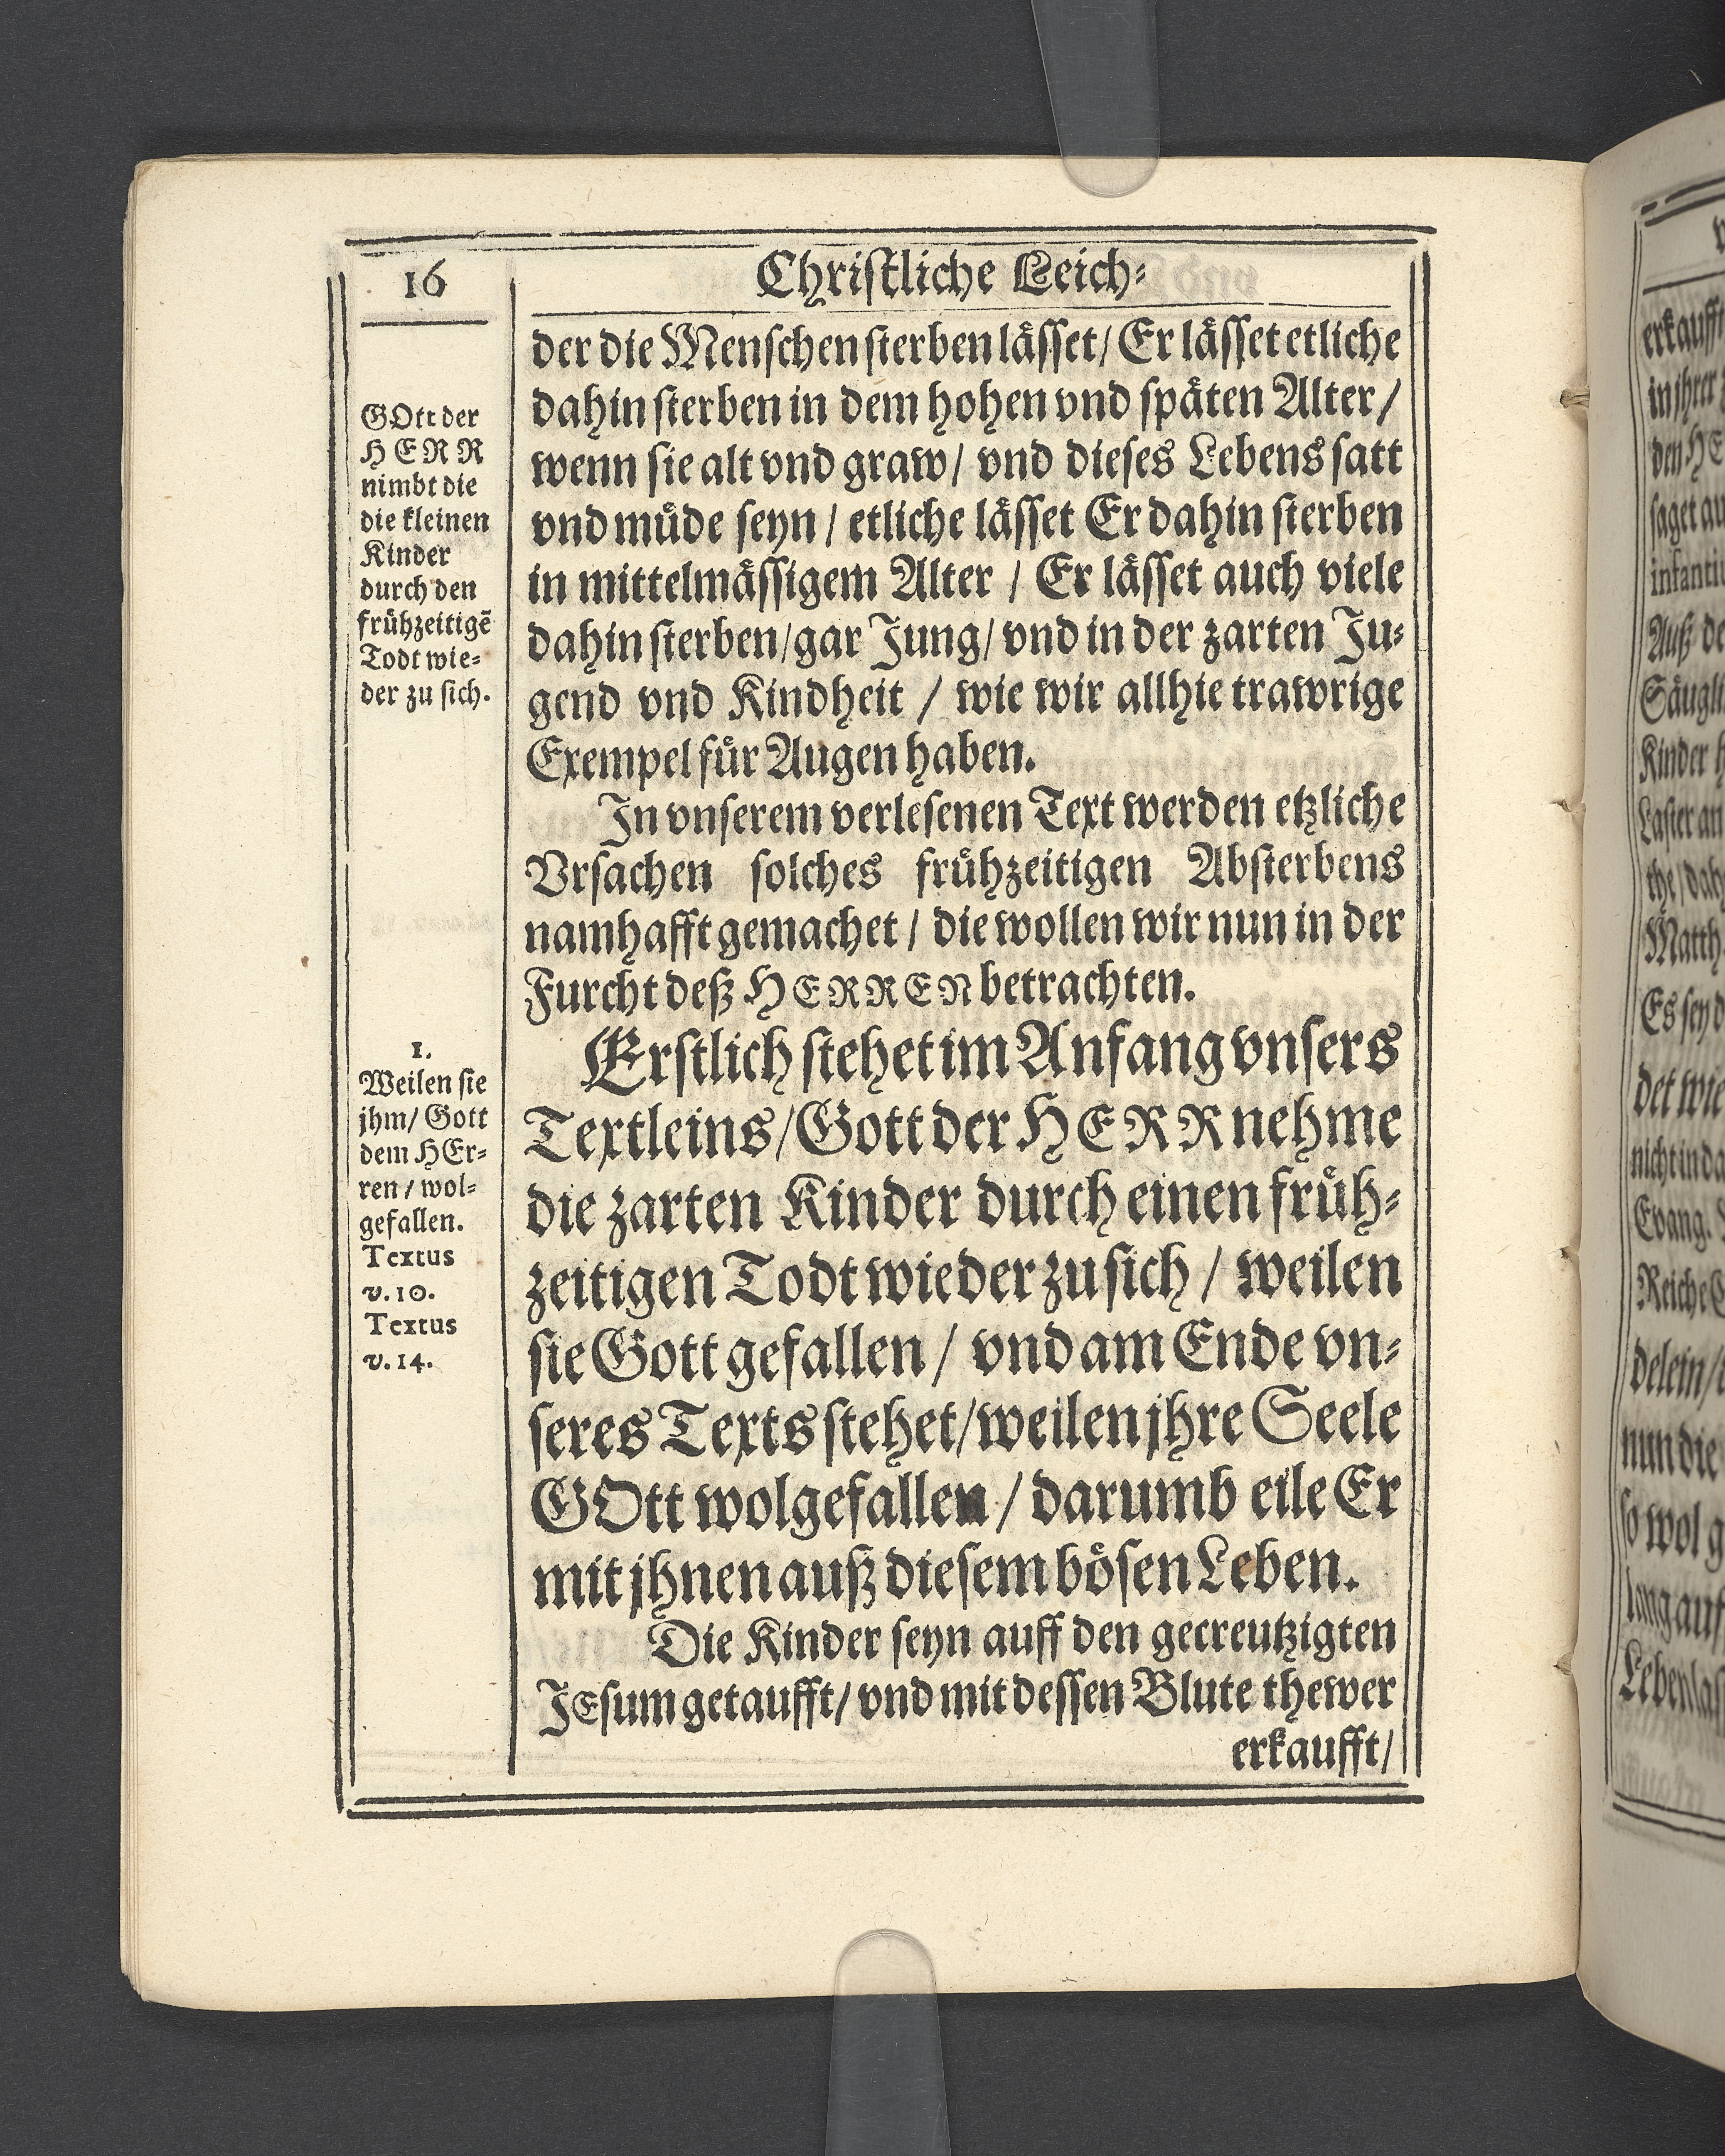 16
Christliche Leich-
der die Menschen sterben lässet/ Er lässet etliche
dahin sterben in dem hohen vnd späten Alter/
wenn sie alt vnd graw/ vnd dieses Lebens satt
vnd müde seyn/ etliche lässet Er dahin sterben
in mittelmässigem Alter / Er lässet auch viele
dahin sterben/gar Jung/ vnd in der zarten Ju-
gend vnd Kindheit / wie wir allhie trawrige
Exempel für Augen haben.
In vnserem verlesenen Text werden etzliche
Vrsachen solches frühzeitigen Absterbens
namhafft gemachet / die wollen wir nun in der
Furcht deß HERREN betrachten.
Erstlich stehet im Anfang vnsers
Textleins/Gott der HERR nehme
die zarten Kinder durch einen früh-
zeitigen Todt wieder zu sich / weilen
sie Gott gefallen / vnd am Ende vn-
seres Texts stehet/weilen jhre Seele
GOtt wolgefallen / darumb eile Er
mit jhnen auß diesem bösen Leben.
Die Kinder seyn auff den gecreutzigten
JEsum getaufft/ vnd mit dessen Blute thewer
erkaufft/
GOtt der
HERR
nimbt die
die kleinen
Kinder
durch den
frühzeitigē
Todt wie-
der zu sich.
1.
Weilen sie
jhm/ Gott
dem HEr-
ren / wol-
gefallen.
Textus
v. 10.
Textus
v. 14.